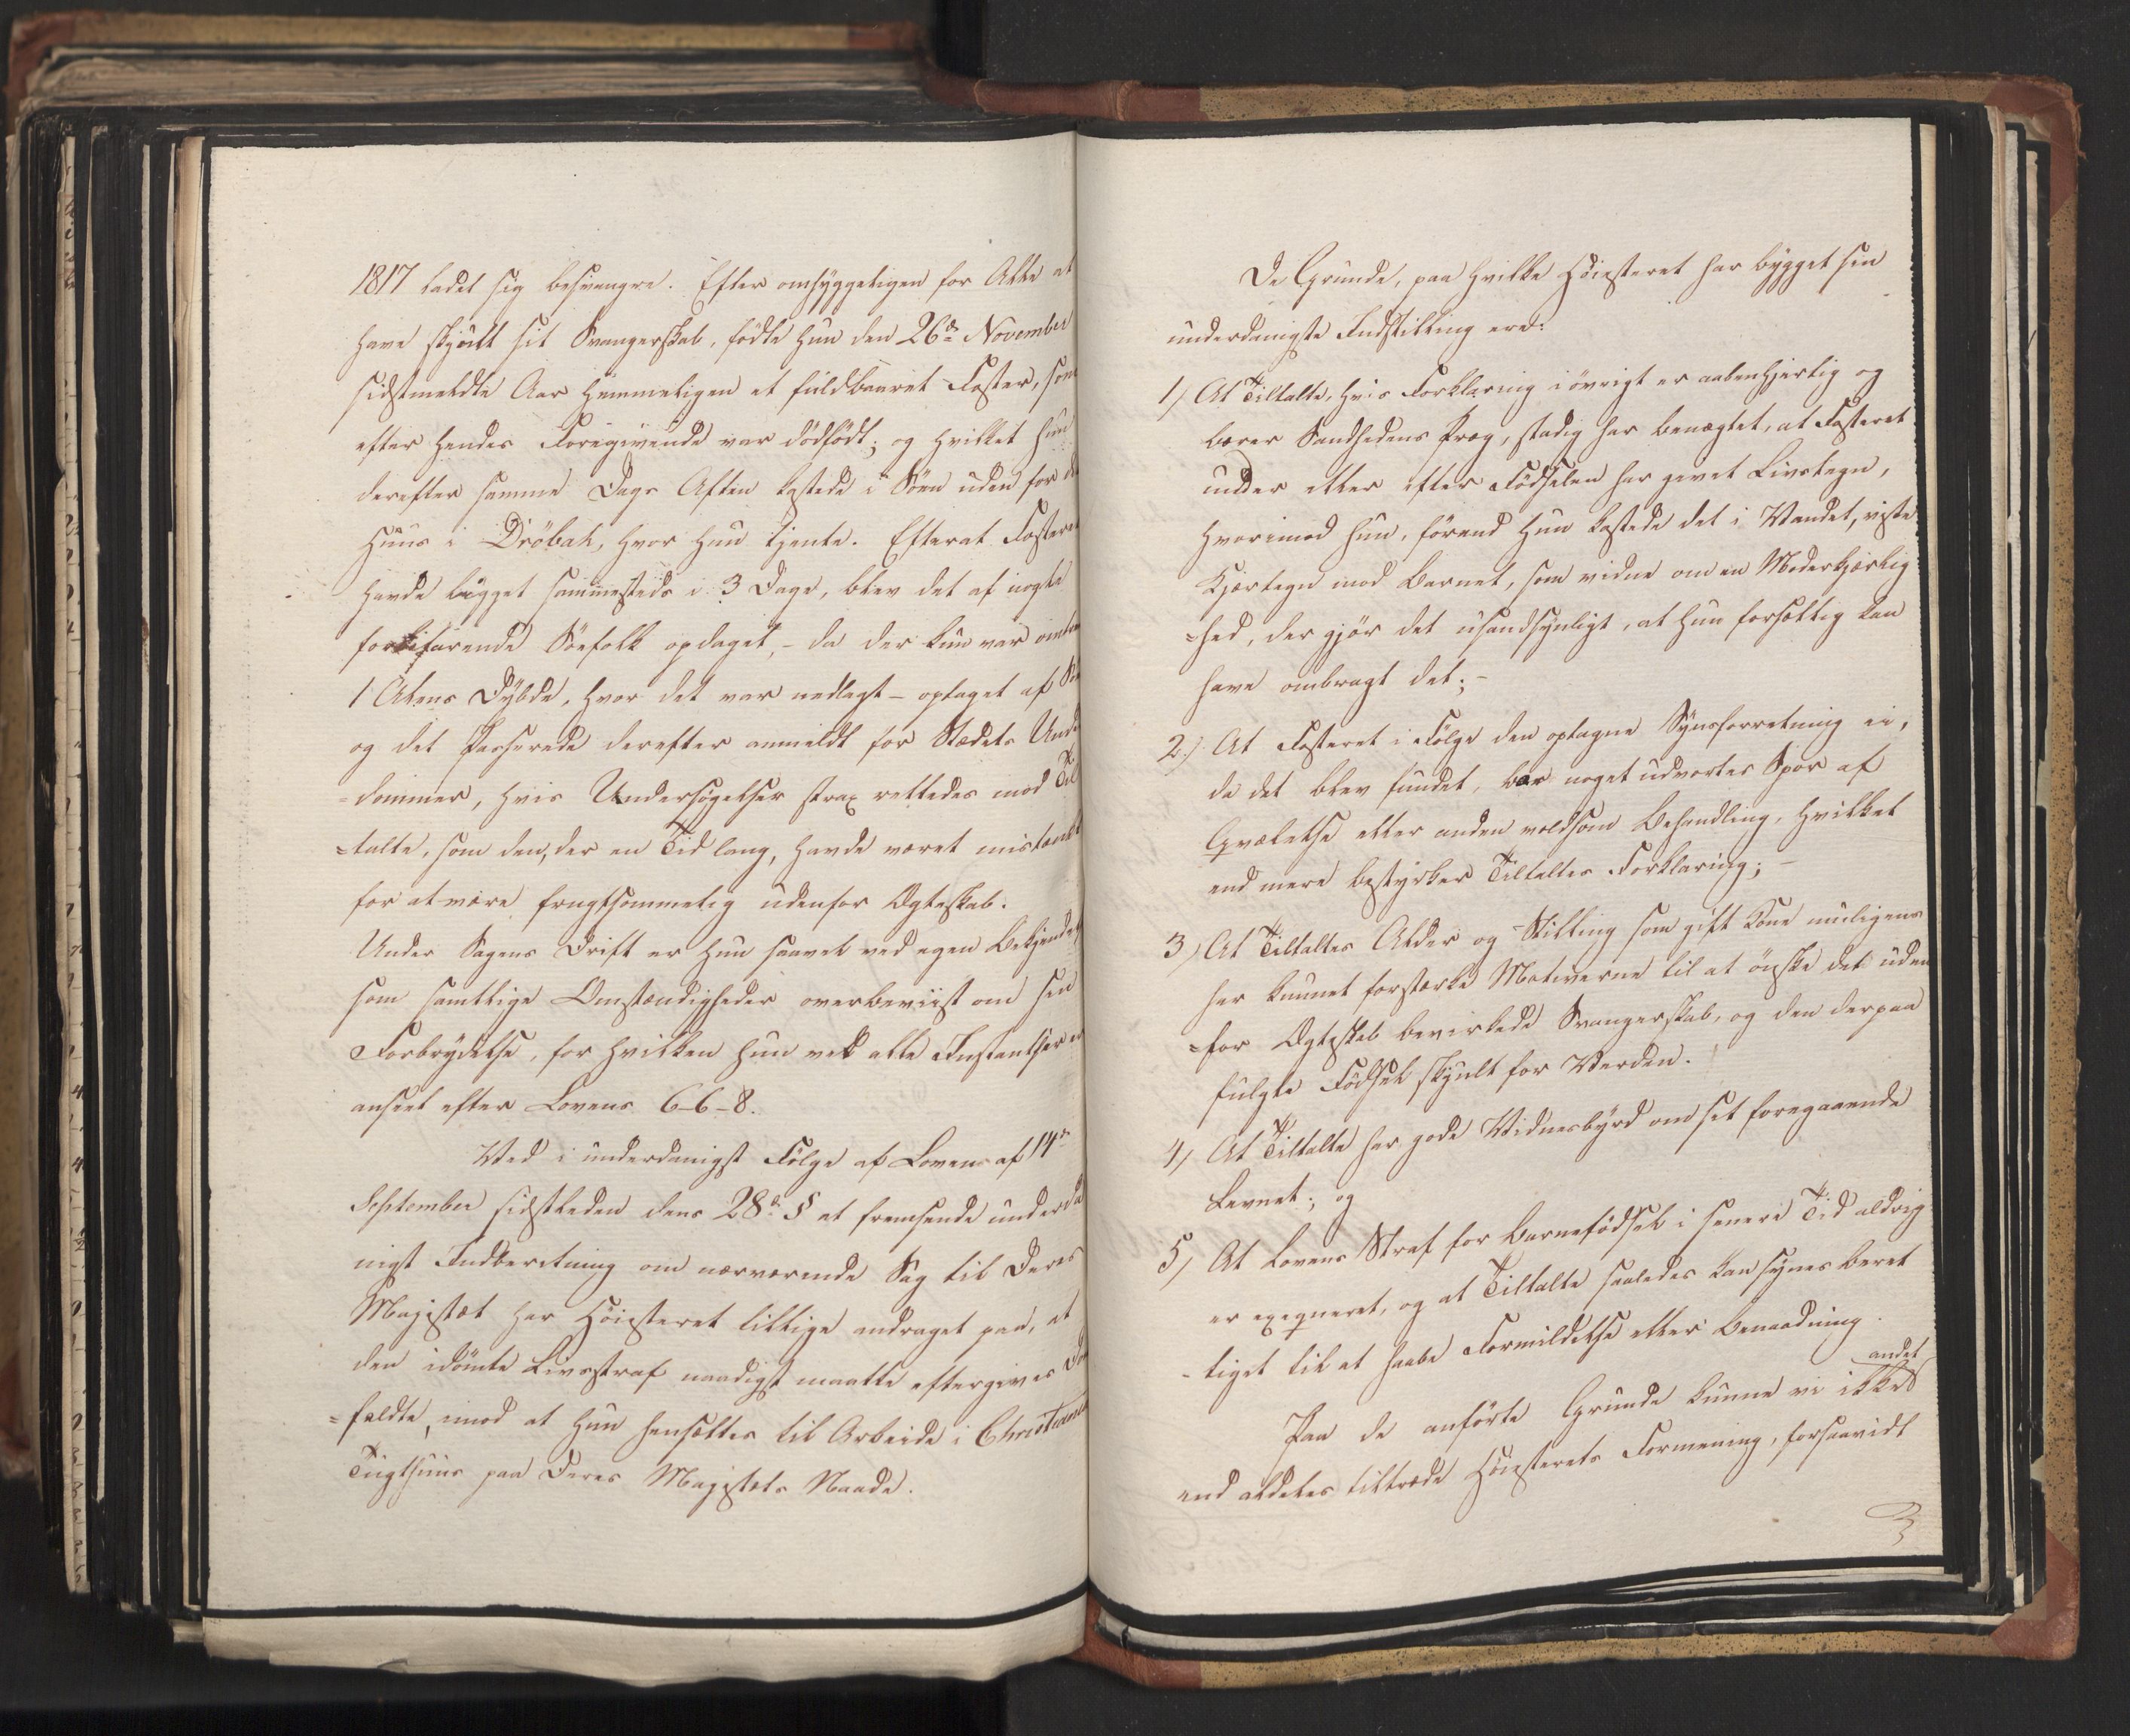 1817 ladet sig besvangre. Efter omhyggeligen for Alle at
have skjult sit Svangerskab, födte hun den 26de November
sidstmeldte Aar hemmeligen et fuldbaaret Foster, som
efter hendes Foregivende var dödfödt; og hvilket hun
derefter samme Dags Aften kastede i Söen uden for det
Huus i Dröbak, hvor hun tjente. Efterat Fosteret
havde ligget sammesteds i 3 Dage, blev det af nogle
forbifarende Söefolk opdaget, - da der kun var omtrent
1 Alens Dybde, hvor det var nedlagt - optaget af
og det Passerede derefter anmeldt for Stedets Under
=dommer, hvis Undersögelser strax rettedes mod Til
=talte, som den, der en Tid lang, havde været mistænkt
for at være frugtsommelig udenfor Ægteskab.
Under Sagens Drift er hun saavel ved egen Bekjendelse
som samtlige Omstændigheder overbeviist om sin
Forbrydelse, for hvilken hun ved alle Instantser er
anseet efter Lovens 6-6-8.
Ved i underdanigst Fölge af Loven af 14de
September sidstleden dens 28de § at fremsende underda
nigst Indberetning om nærværende Sag til Deres
Majestæt har Höiesteret tillige andraget paa, at
den idömte Livsstraf naadigst maatte eftergives Dom
=fældte, imod at hun hensættes til Arbeide i Christiania
Tugthuus paa Deres Majestæts Naade.
De Grunde, paa hvilke Höiesteret har bygget sin
underdanigste Indstilling ere:
1) At Tiltalte, hvis Forklaring iövrigt er aabenhjertig og
bærer Sandhedens Præg, stadig har benægtet, at Fosteret
under eller efter Födselen har givet Livstegn,
hvorimod hun, förend hun kastede det i Vandet, viste
Kjærtegn mod Barnet, som vidne om en Moderkjærlig
=hed, der gjör det usandsynligt, at hun forsætlig kan
have ombragt det; -
2) At Fosteret i Fölge den optagne Synsforretning ei,
da det blev fundet, bar noget udvortes Spor af
Qvælelse eller anden voldsom Behandling, hvilket
end mere bestyrker Tiltaltes Forklaring; -
3) At Tiltaltes Alder og Stilling som gift Kone muligens
har kunnet forstærke Motiverne til at önske det uden
=for Ægteskab bevirkede Svangerskab, og den derpaa
fulgte Födsel skjult for Verden.
4) At Tiltalte har gode Vidnesbyrd om sit foregaaende
Levnet; og
5) At Lovens Straf for Barnefödsel i senere Tid aldrig
er exeqveret, og at Tiltalte saaledes kan synes beret
-tiget til at haabe Formildelse eller Benaadning.
Paa de anförte Grunde kunne vi ikke andet
end aldeles tiltræde Höiesterets Formening, forsaavidt